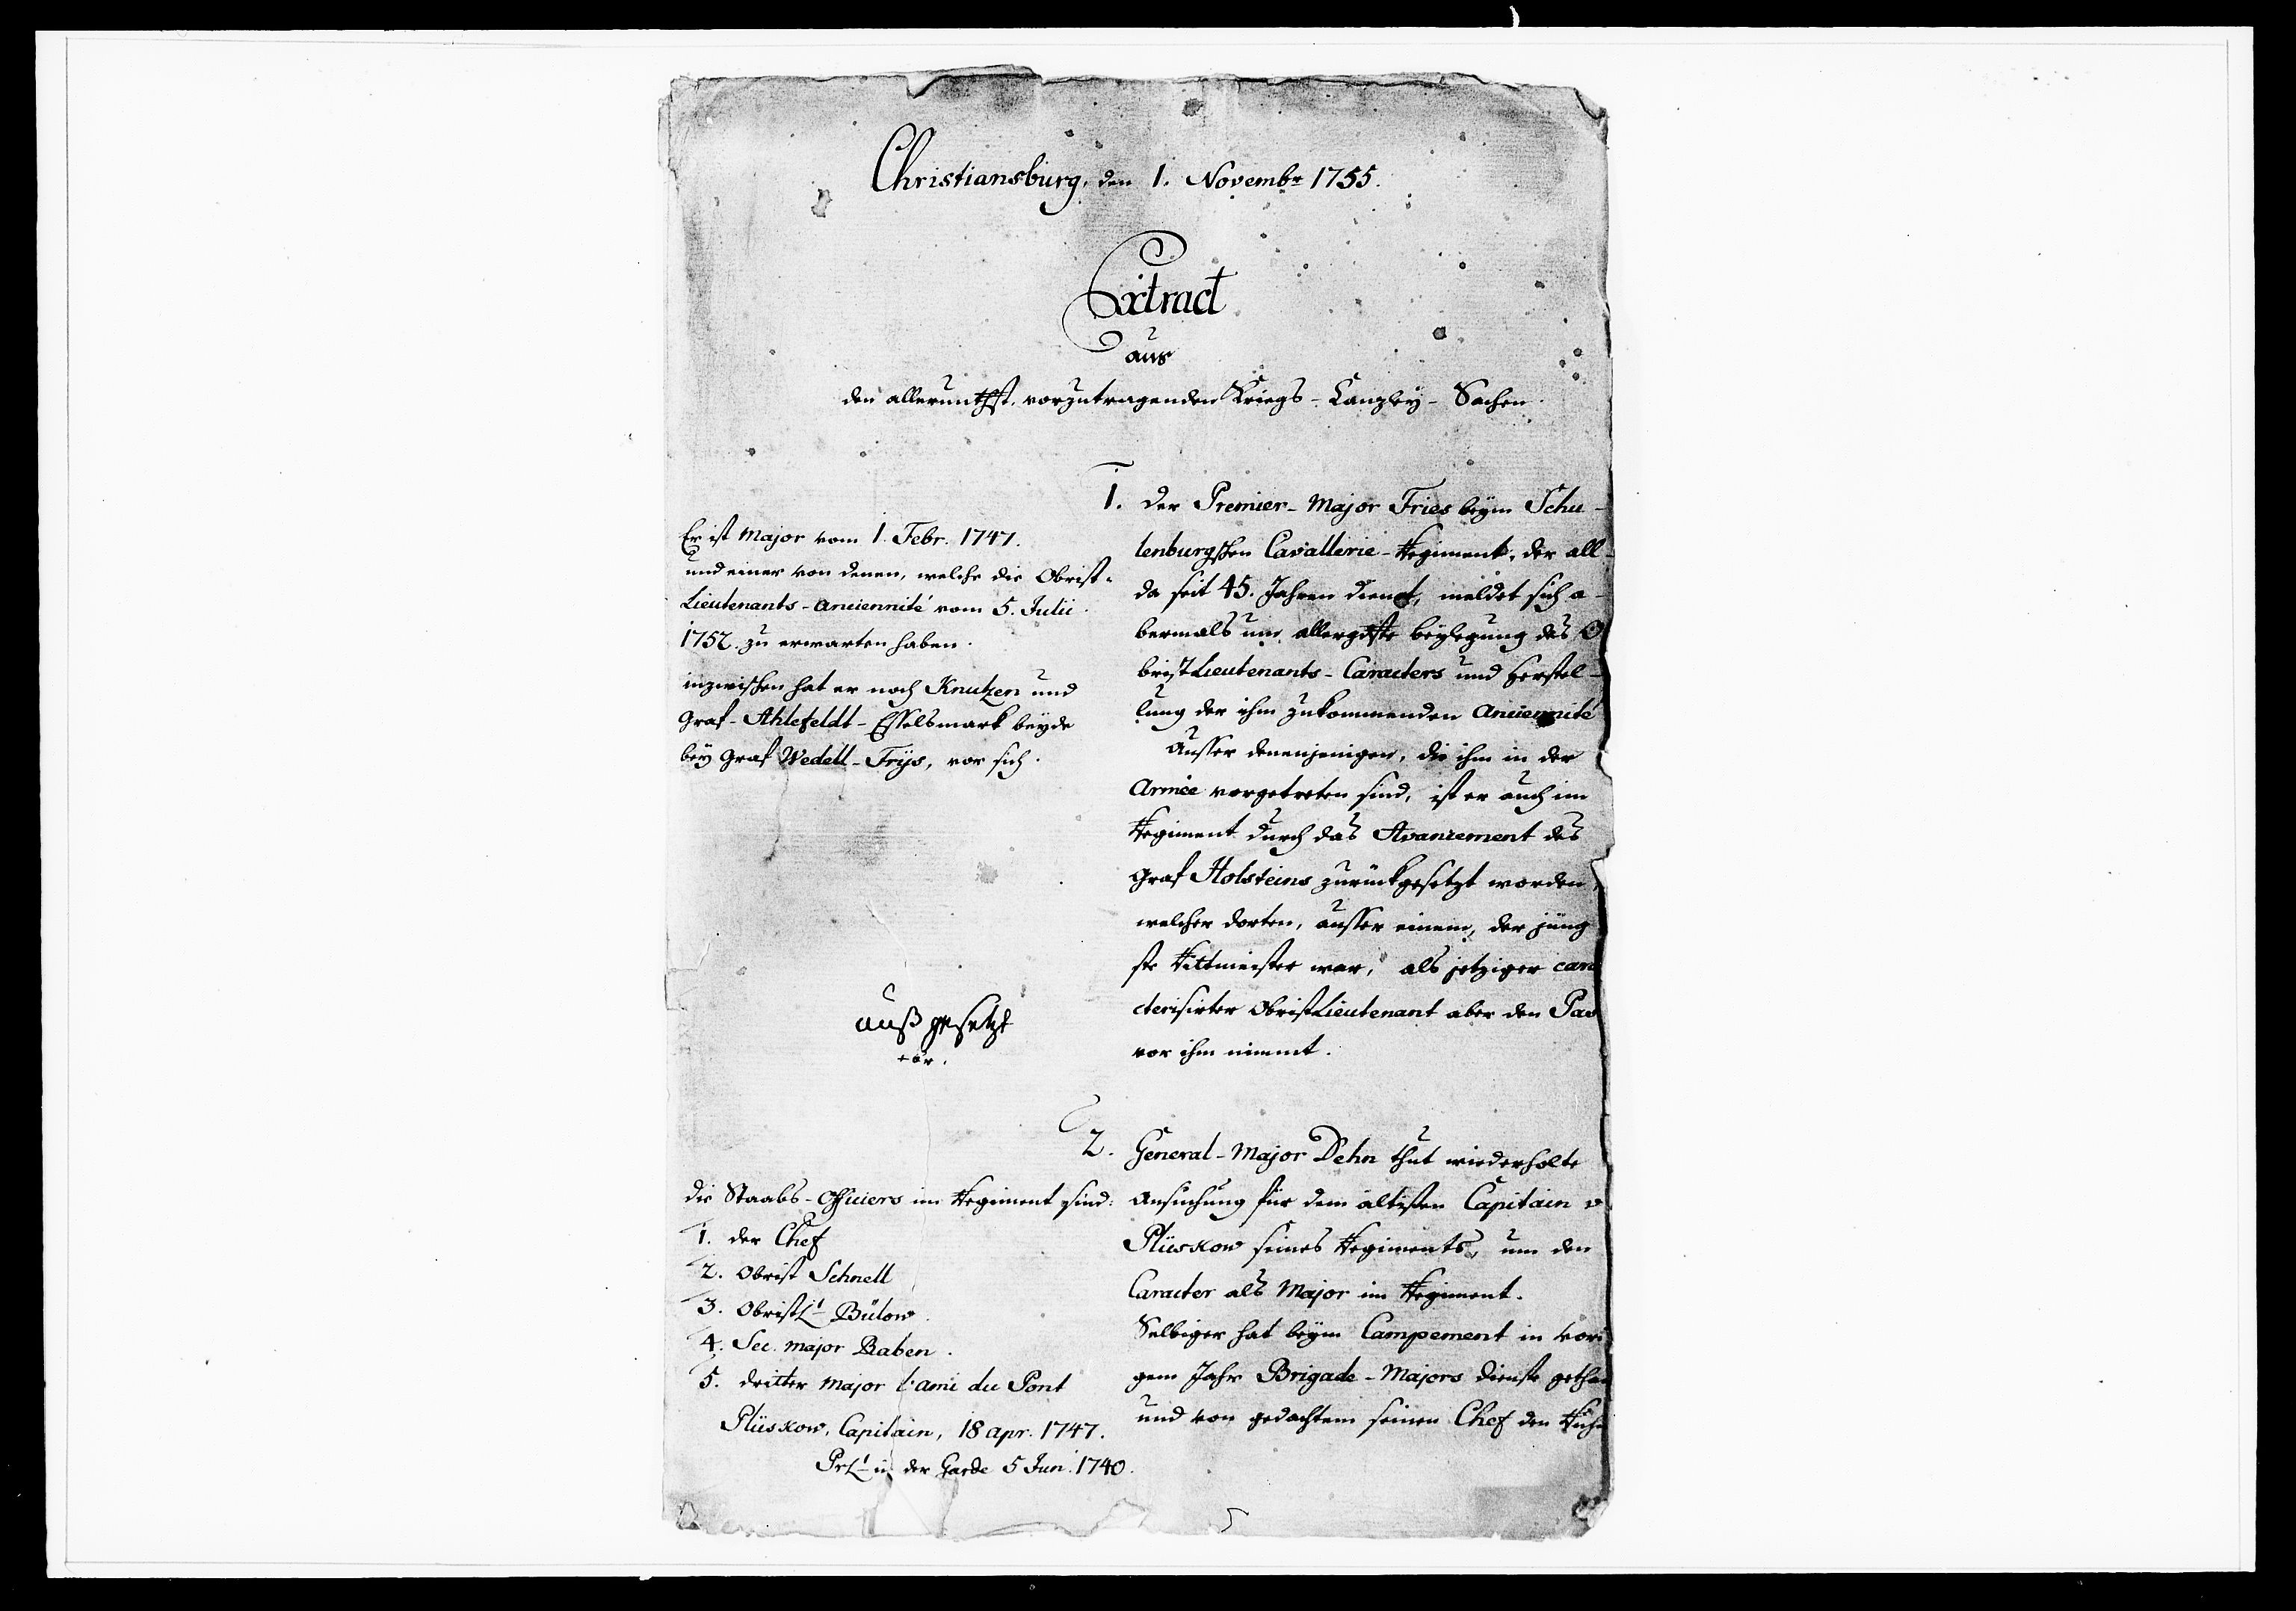 Christiansburg, den 1. Novembr 1755.
Extract
aus
den allerunthst. vorzutragenden Kriegs-Canzley-Sachen.
1. Der Premier-Major Fries beym Schu-
lenburgschen Cavallerie-Regiment, der all-
da seit 45. Jahren dienet, meldet sich a-
bermals um allergdste beylegung des O
brist Lieutenants-Caracters und Herstel-
lung der ihm zukommenden Anciennité
Ausser denenjenigen, die ihm in der
Armée vorgetreten sind, ist er auch im
Regiment durch das Avancement des
Graf Holsteins zurückgesetzt worden,
welcher dorten, ausser einem, der jüng
ste Rittmeister war, als jetziger cara
cterisirter ObristLieutenant aber den Pas
vor ihm nimmt.
Er ist Major vom 1. Febr. 1747.
und einer von denen, welche die Obrist-
Lieutenants-Anciennité vom 5. Julii
1752. zu erwarten haben.
inzwischen hat er noch Knutzen und
Graf-Ahlefeldt-Esselsmark beyde
bey Graf Wedell-Frijs, vor sich.
außgesetzt
2. General-Major Dehn thut wiederholte
Ansuchung für dem ältisten Capitain v
Plüskow seines Regiments, um den
Caracter als Major im Regiment.
Selbiger hat beym Campement in vori
gem Jahr Brigade-Majors Dienste gethan
und von gedachtem seinen Chef den Ruhm
die Staabs-Officiers im Regiment sind:
1. der Chef
2. Obrist Schnell
3. ObristLt Bülow.
4. Sec. Major Raben.
5. dritter Major l'ami du Pont
Plüskow, Capitain, 18 apr. 1747.
PrLt in der Garde 5 Jun. 1740.